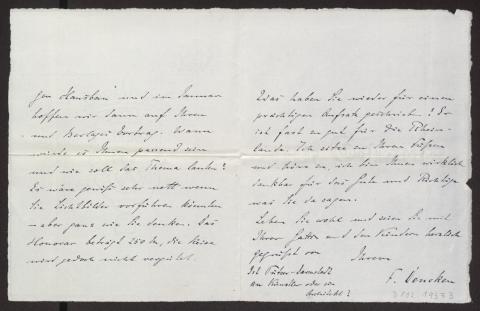 gen Hausbau" und im Januar
hoffen wir dann auf Ihren
und Berlages Vortrag. Wann
würde es Ihnen passend sein
und wie soll das Thema lauten?
Es wäre gewiß sehr nett wenn
Sie Lichtbilder vorführen könnten
– aber ganz wie Sie denken. Das
Honorar beträgt 250 M, die Reise
wird jedoch nicht vergütet.
Was haben Sie wieder für einen
prächtigen Aufsatz geschrieben! Er
ist fast zu gut für die
Ich sitze zu Ihren Füßen
und höre zu, ich bin Ihnen wirklich
dankbar für das Gute und Richtige
was Sie da sagen.
Leben Sie wohl und seien Sie mit
Ihrer Gattin und den Kindern herzlich
gegrüßt von
Ihrem
F.
Ist
ein Künstler oder ein
Architekt?